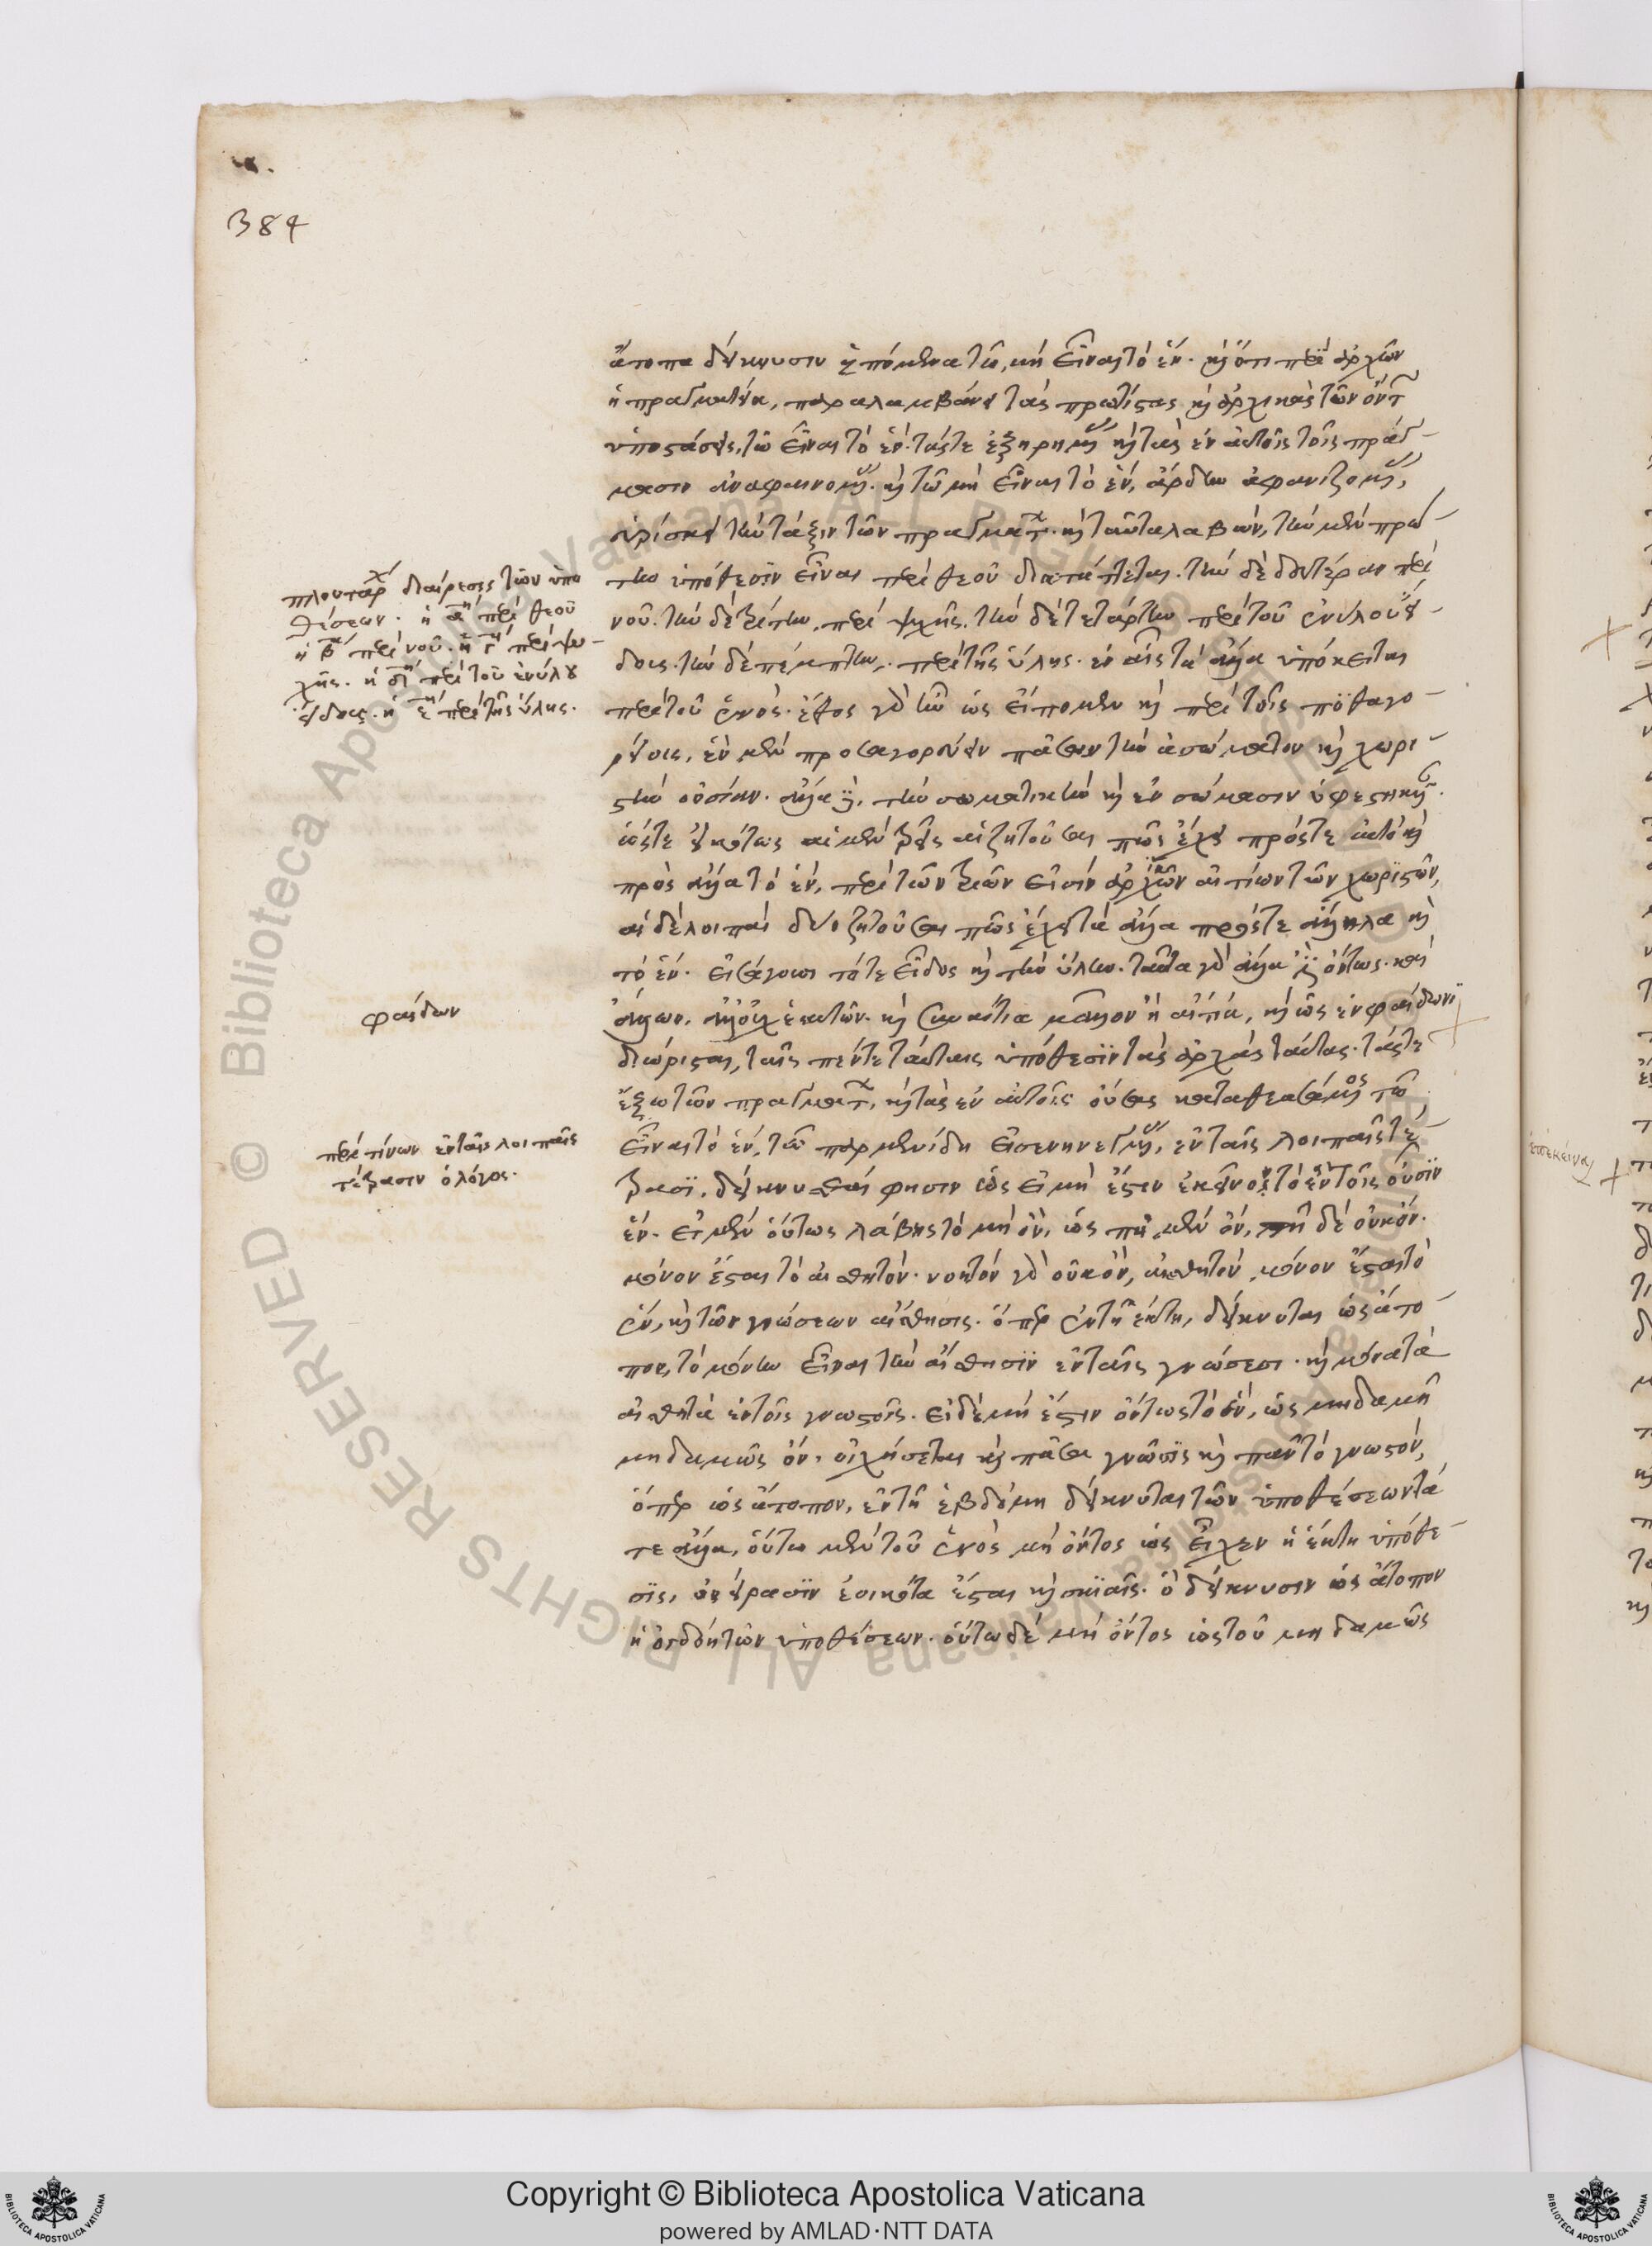 384
ἄτοπα δείκνυσιν ἑπόμενα τῷ, μὴ εἶναι τὸ ἕν. καὶ ὅτι περὶ ἀρχῶν
ἡ πραγματεία, παραλαμβάνει τὰς πρωτίστας καὶ ἀρχικὰς τῶν ὄντ
ὑποστάσεις, τῷ εἶναι τὸ ἕν. τάς τε ἐξῃρημένας καὶ τὰς ἐν αὐτοῖς τοῖς πράγ-
μασιν ἀναφαινομένας. καὶ τῷ μὴ εἶναι τὸ ἕν, ἄρδην ἀφανιζομένας,
εὑρίσκει τὴν τάξιν τῶν πραγμάτων. καὶ ταῦτα λαβὼν, τὴν μὲν πρώ-
την ὑπόθεσιν εἶναι περὶ θεοῦ διατάττεται. τὴν δὲ δευτέραν περὶ
νοῦ. τὴν δὲ τρίτην, περὶ ψυχῆς. τὴν δὲ τετάρτην περὶ τοῦ ἐνύλου εἴ-
δους. τὴν δὲ πέμπτην, περὶ τῆς ὕλης. ἐν αἷς τὰ ἄλλα ὑπόκειται
περὶ τοῦ ἑνός. ἔθος γὰρ ἦν ὡς εἴπομεν καὶ περὶ τοῖς πυθαγο-
ρείοις, ἓν μὲν προσαγορεύειν πᾶσαν τὴν ἀσώματον καὶ χωρι-
στὴν οὐσίαν. ἄλλα δὲ, τὴν σωματικὴν καὶ ἐν σώμασιν ὑφεστηκυῖαν.
ὥστε εἰκότως αἱ μὲν τρεῖς αἱ ζητοῦσαι πῶς ἔχει πρός τε αὐτὸ καὶ
πρὸς ἄλλα τὸ ἕν, περὶ τῶν τριῶν εἰσὶν ἀρχικῶν αἰτίων τῶν χωριστῶν,
αἱ δὲ λοιπαὶ δύο ζητοῦσαι πῶς ἔχει τὰ ἄλλα πρός τε ἄλληλα καὶ
τὸ ἕν. εἰσάγουσι τό τε εἶδος καὶ τὴν ὕλην. ταῦτα γὰρ ἄλλα ὄντως. καὶ
ἄλλων, ἀλλ' οὐχ ἑαυτῶν. καὶ συναίτια μᾶλλον ἢ αἴτια, καὶ ὡς ἐν φαίδωνι
διώρισται, ταῖς πέντε ταύταις ὑπόθεσιν τὰς ἀρχὰς ταύτας. τάς τε
ἔξω τῶν πραγμάτων, καὶ τὰς ἐν αὐτοῖς οὔσας καταθεασάμενος τῷ
εἶναι τὸ ἕν, τῷ παρμενίδῃ εἰσενηνεγμένας, ἐν ταῖς λοιπαῖς τέτ-
τρασι, δείκνυσθαι φησιν ὡς εἰ μὴ ἔστιν ἐκεῖνο τὸ ἐν τοῖς οὖσιν
ἕν. εἰ μὲν οὕτως λάβῃς τὸ μὴ ὂν, ὡς πῇ μὲν ὂν, πῇ δὲ οὐκ ὄν.
μόνον ἔσται τὸ αἰσθητόν. νοητὸν γὰρ οὐκ ὂν, αἰσθητὸν μόνον ἔσται τὸ
ἓν, καὶ τῶν γνώσεων αἴσθησις. ὅπερ ἐν τῇ ἕκτῃ, δείκνυται ὡς ἄτο-
πον, τὸ μόνην εἶναι τὴν αἴσθησιν ἐν ταῖς γνώσεσι. καὶ μόνα τὰ
αἰσθητὰ ἐν τοῖς γνωστοῖς. εἰ δὲ μὴ ἔστιν ὄντως τὸ ἓν, ὡς μηδαμῇ
μηδαμῶς ὂν, οἰχήσεται καὶ πᾶσα γνῶσις καὶ πᾶν τὸ γνωστόν,
ὅπερ ὡς ἄτοπον, ἐν τῇ ἑβδόμῃ δείκνυται τῶν ὑποθέσεων τά
τε ἄλλα, οὕτω μὲν τοῦ ἑνὸς μὴ ὄντος ὡς εἶχεν ἡ ἕκτη ὑπόθε-
σις, ὀνείρασιν ἐοικότα ἔσται καὶ σκιαῖς. ὃ δείκνυσιν ὡς ἄτοπον
ἡ ὀγδόη τῶν ὑποθέσεων. οὕτω δὲ μὴ ὄντος ὡς τοῦ μηδαμῶς
πλουτάρχ διαίρεσις τῶν ὑπο
θέσεων. ἡ αη περὶ θεοῦ
ἡ βα περὶ νοῦ. ἡ γη περὶ ψυ-
χῆς. ἡ δη περὶ τοῦ ἐνύλου
εἴδους. ἡ εη περὶ τῆς ὕλης.
φαίδων
περὶ τίνων ἐν ταῖς λοιπαῖς
τέτρασιν ὁ λόγος.
ἐπέκεινα
Biblioteca Apostolica Vaticana ALL RIGHTS RESERVED ©
Copyright © Biblioteca Apostolica Vaticana
powered by AMLAD·NTT DATA
BIBLIOTECA APOSTOLICA VATICANA
BIBLIOTECA APOSTOLICA VATICANA